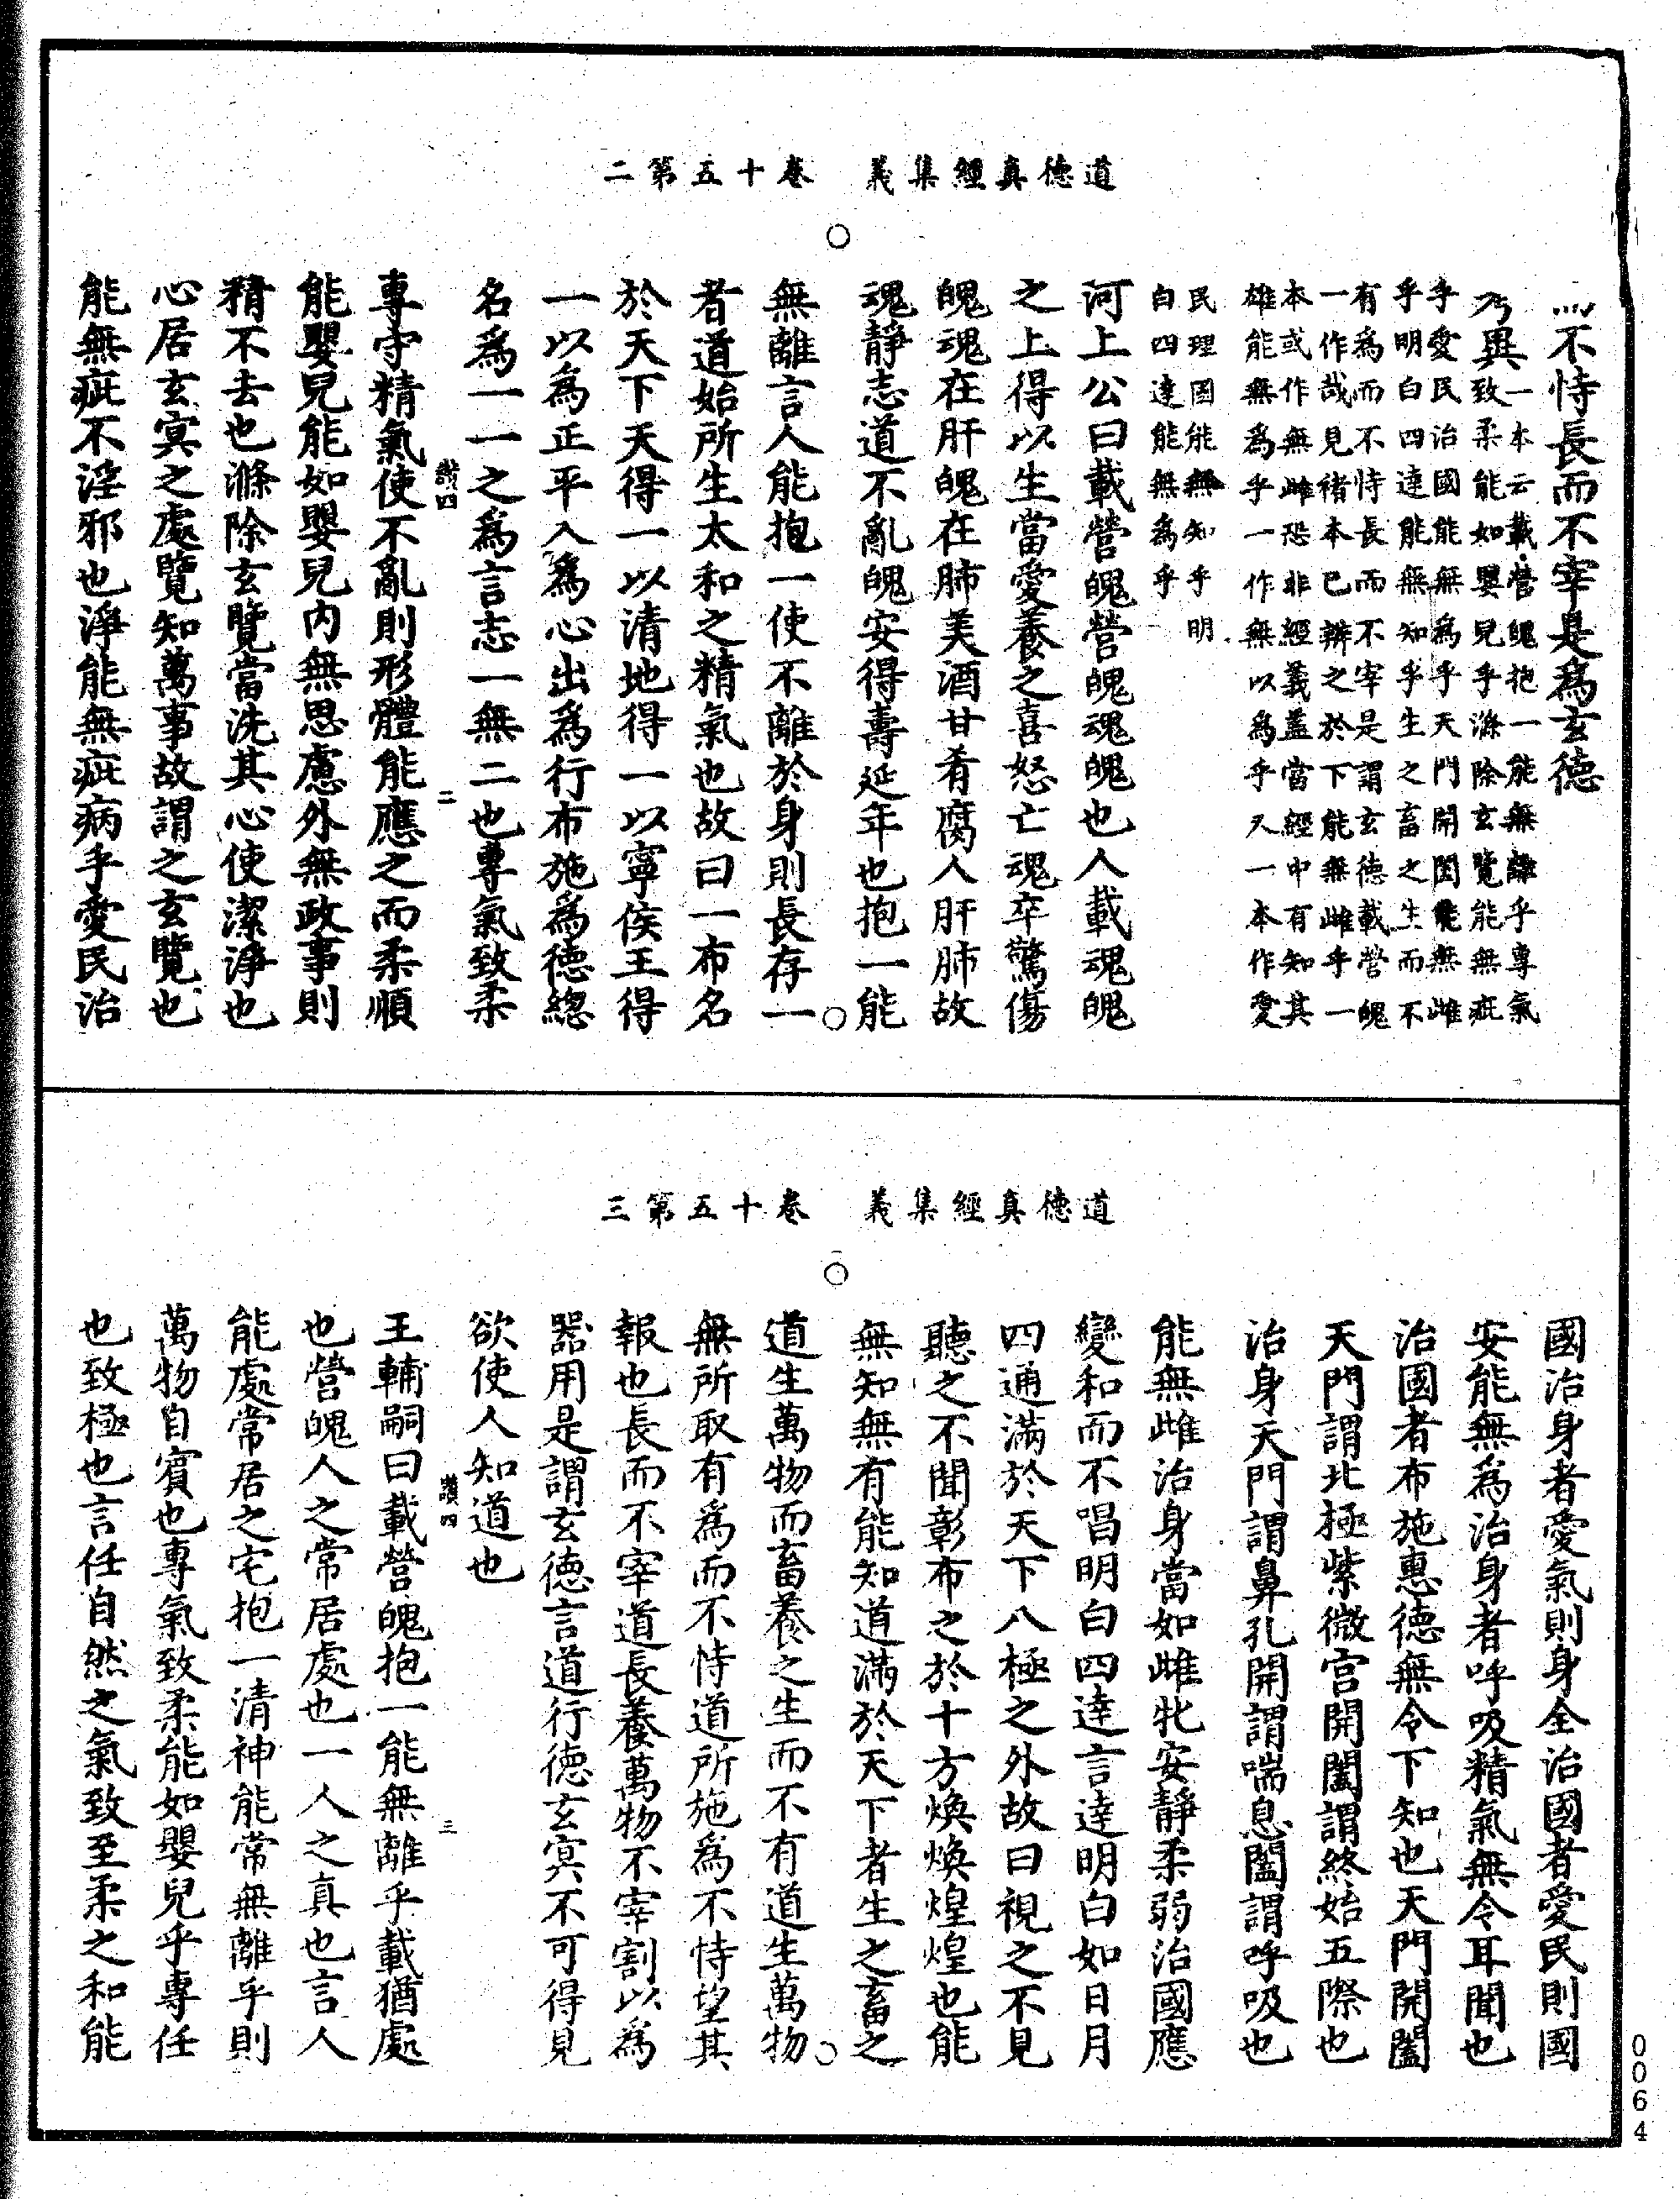 道德真經集義　卷十五第二
不恃長而不宰是爲玄德
異一本云載營魄抱一能無離乎專氣
致柔能如嬰兒乎滌除玄覽能無疵
乎愛民治國能無爲乎天門開闔能無雌
乎明白四達能無知乎生之畜之生而不
有爲而不恃長而不宰是謂玄德載營魄
一作哉見褚本已辨之於下能無雌乎一
本或作無雌恐非經義蓋當經中有知其
雄能無爲乎一作無以爲乎又一本作愛
民理國能無知乎明
白四達能無爲乎
河上公曰載營魄營魄魂魄也人載魂魄
之上得以生當愛養之喜怒亡魂卒驚傷
魄魂在肝魄在肺美酒甘肴腐人肝肺故
魂靜志道不亂魄安得壽延年也抱一能
無離言人能抱一使不離於身則長存一
者道始所生太和之精氣也故曰一布名
於天下天得一以清地得一以寧侯王得
一以爲正平入爲心出爲行布施爲德總
名爲一一之爲言志一無二也專氣致柔
讚四　二
專守精氣使不亂則形體能應之而柔順
能嬰兒能如嬰兒内無思慮外無政事則
精不去也滌除玄覽當洗其心使潔淨也
心居玄冥之處覽知萬事故謂之玄覽也
能無疵不淫邪也淨能無疵病乎愛民治
道德真經集義　卷十五第三
國治身者愛氣則身全治國者愛民則國
安能無爲治身者呼吸精氣無令耳聞也
治國者布施惠德無令下知也天門開闔
天門謂北極紫微宫開闔謂終始五際也
治身天門謂鼻孔開謂喘息闔謂呼吸也
能無雌治身當如雌牝安靜柔弱治國應
變和而不唱明白四達言達明白如日月
四通滿於天下八極之外故曰視之不見
聽之不聞彰布之於十方煥煥煌煌也能
無知無有能知道滿於天下者生之畜之
道生萬物而畜養之生而不有道生萬物
無所取有爲而不恃道所施爲不恃望其
報也長而不宰道長養萬物不宰割以爲
器用是謂玄德言道行德玄冥不可得見
欲使人知道也
讚四　三
王輔嗣曰載營魄抱一能無離乎載猶處
也營魄人之常居處也一人之真也言人
能處常居之宅抱一清神能常無離乎則
萬物自賓也專氣致柔能如嬰兒乎專任
也致極也言任自然之氣致至柔之和能
0064